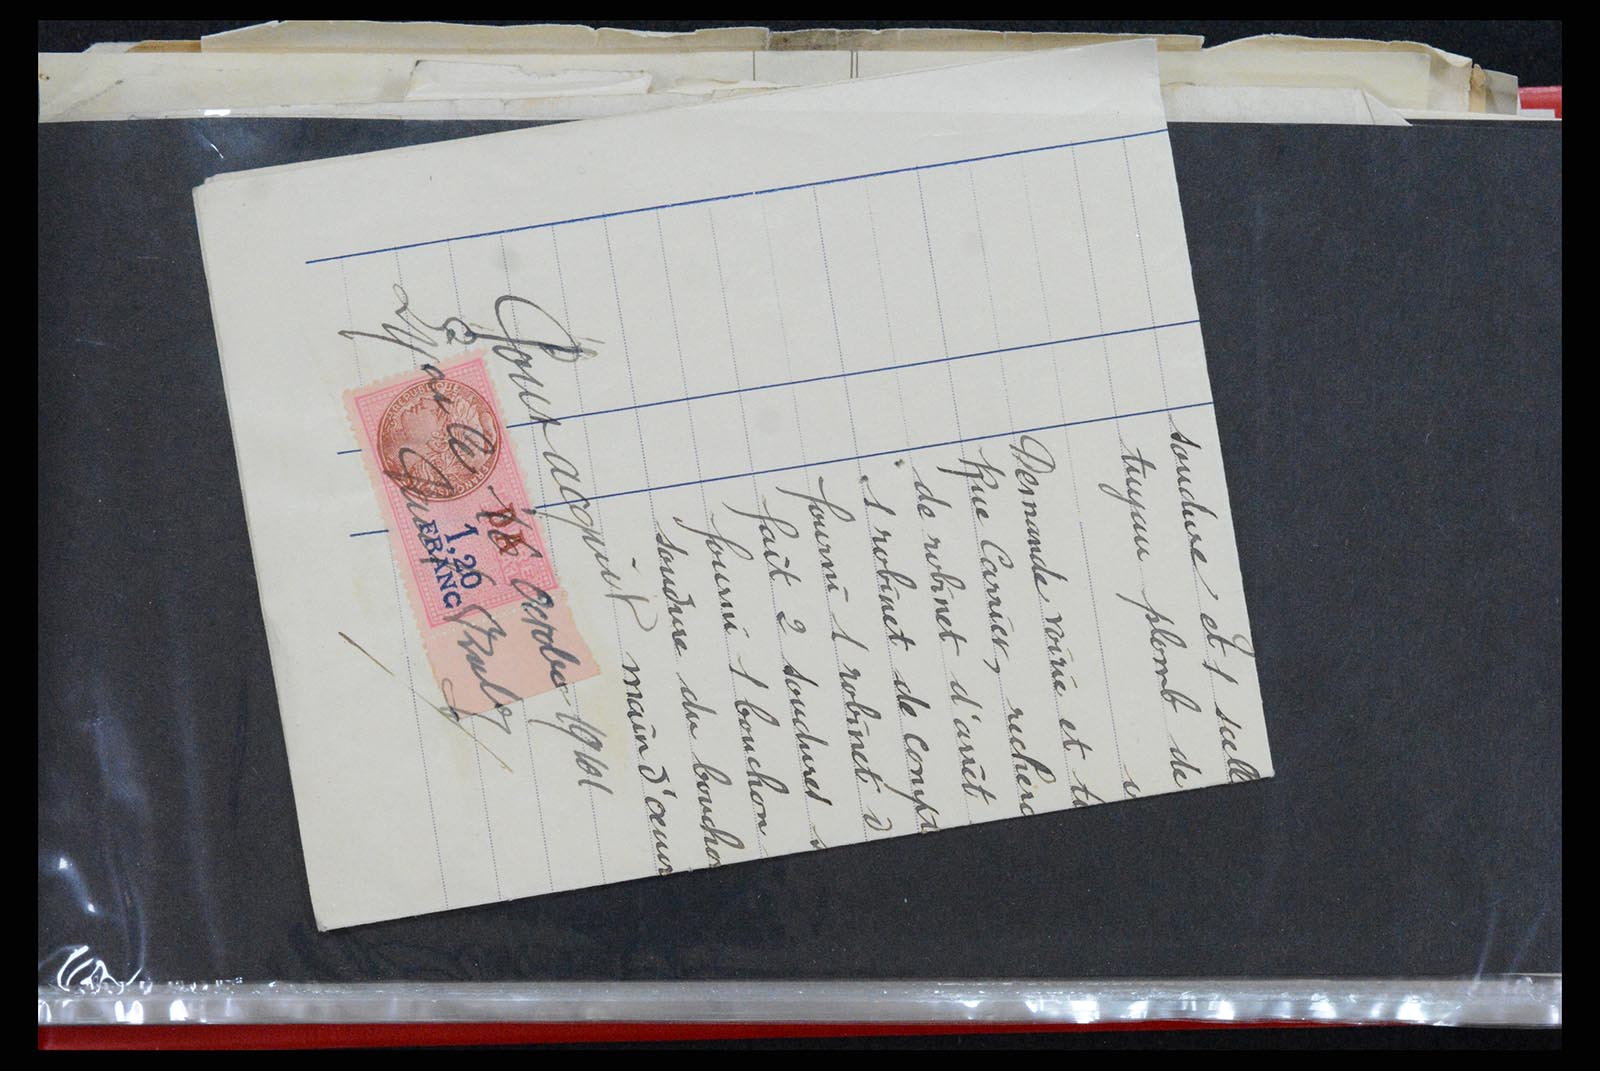 soudure et 1 selle
tuyau plomb de
Demande voirie et
Rue Carrier, recherc
de robinet d'arrêt
1 robinet de compt
fourni 1 robinet d
fait 2 soudures
fourni 1 bouchon
soudure du boucho
main d'oeuv
Pour acquit
Lyon le 18 octobre 1941
RÉPUBLIQUE FRANÇAISE
1,20
FRANC